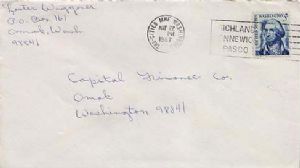 Lester Waggoner
P.O. Box 161
Omak, Wash.
98841
MAY
PM
1967
RICHLAND
KENNEWICK
PASCO
WASHINGTON 5c
Capital Finance Co.
Omak
Washington 98841